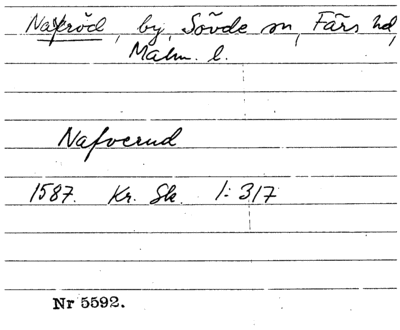 Naxröd, by, Sövde sn, Färs hd,
Malm. l.
Nafverud
1587. Kr. Sk. 1:317
Nr 5592.